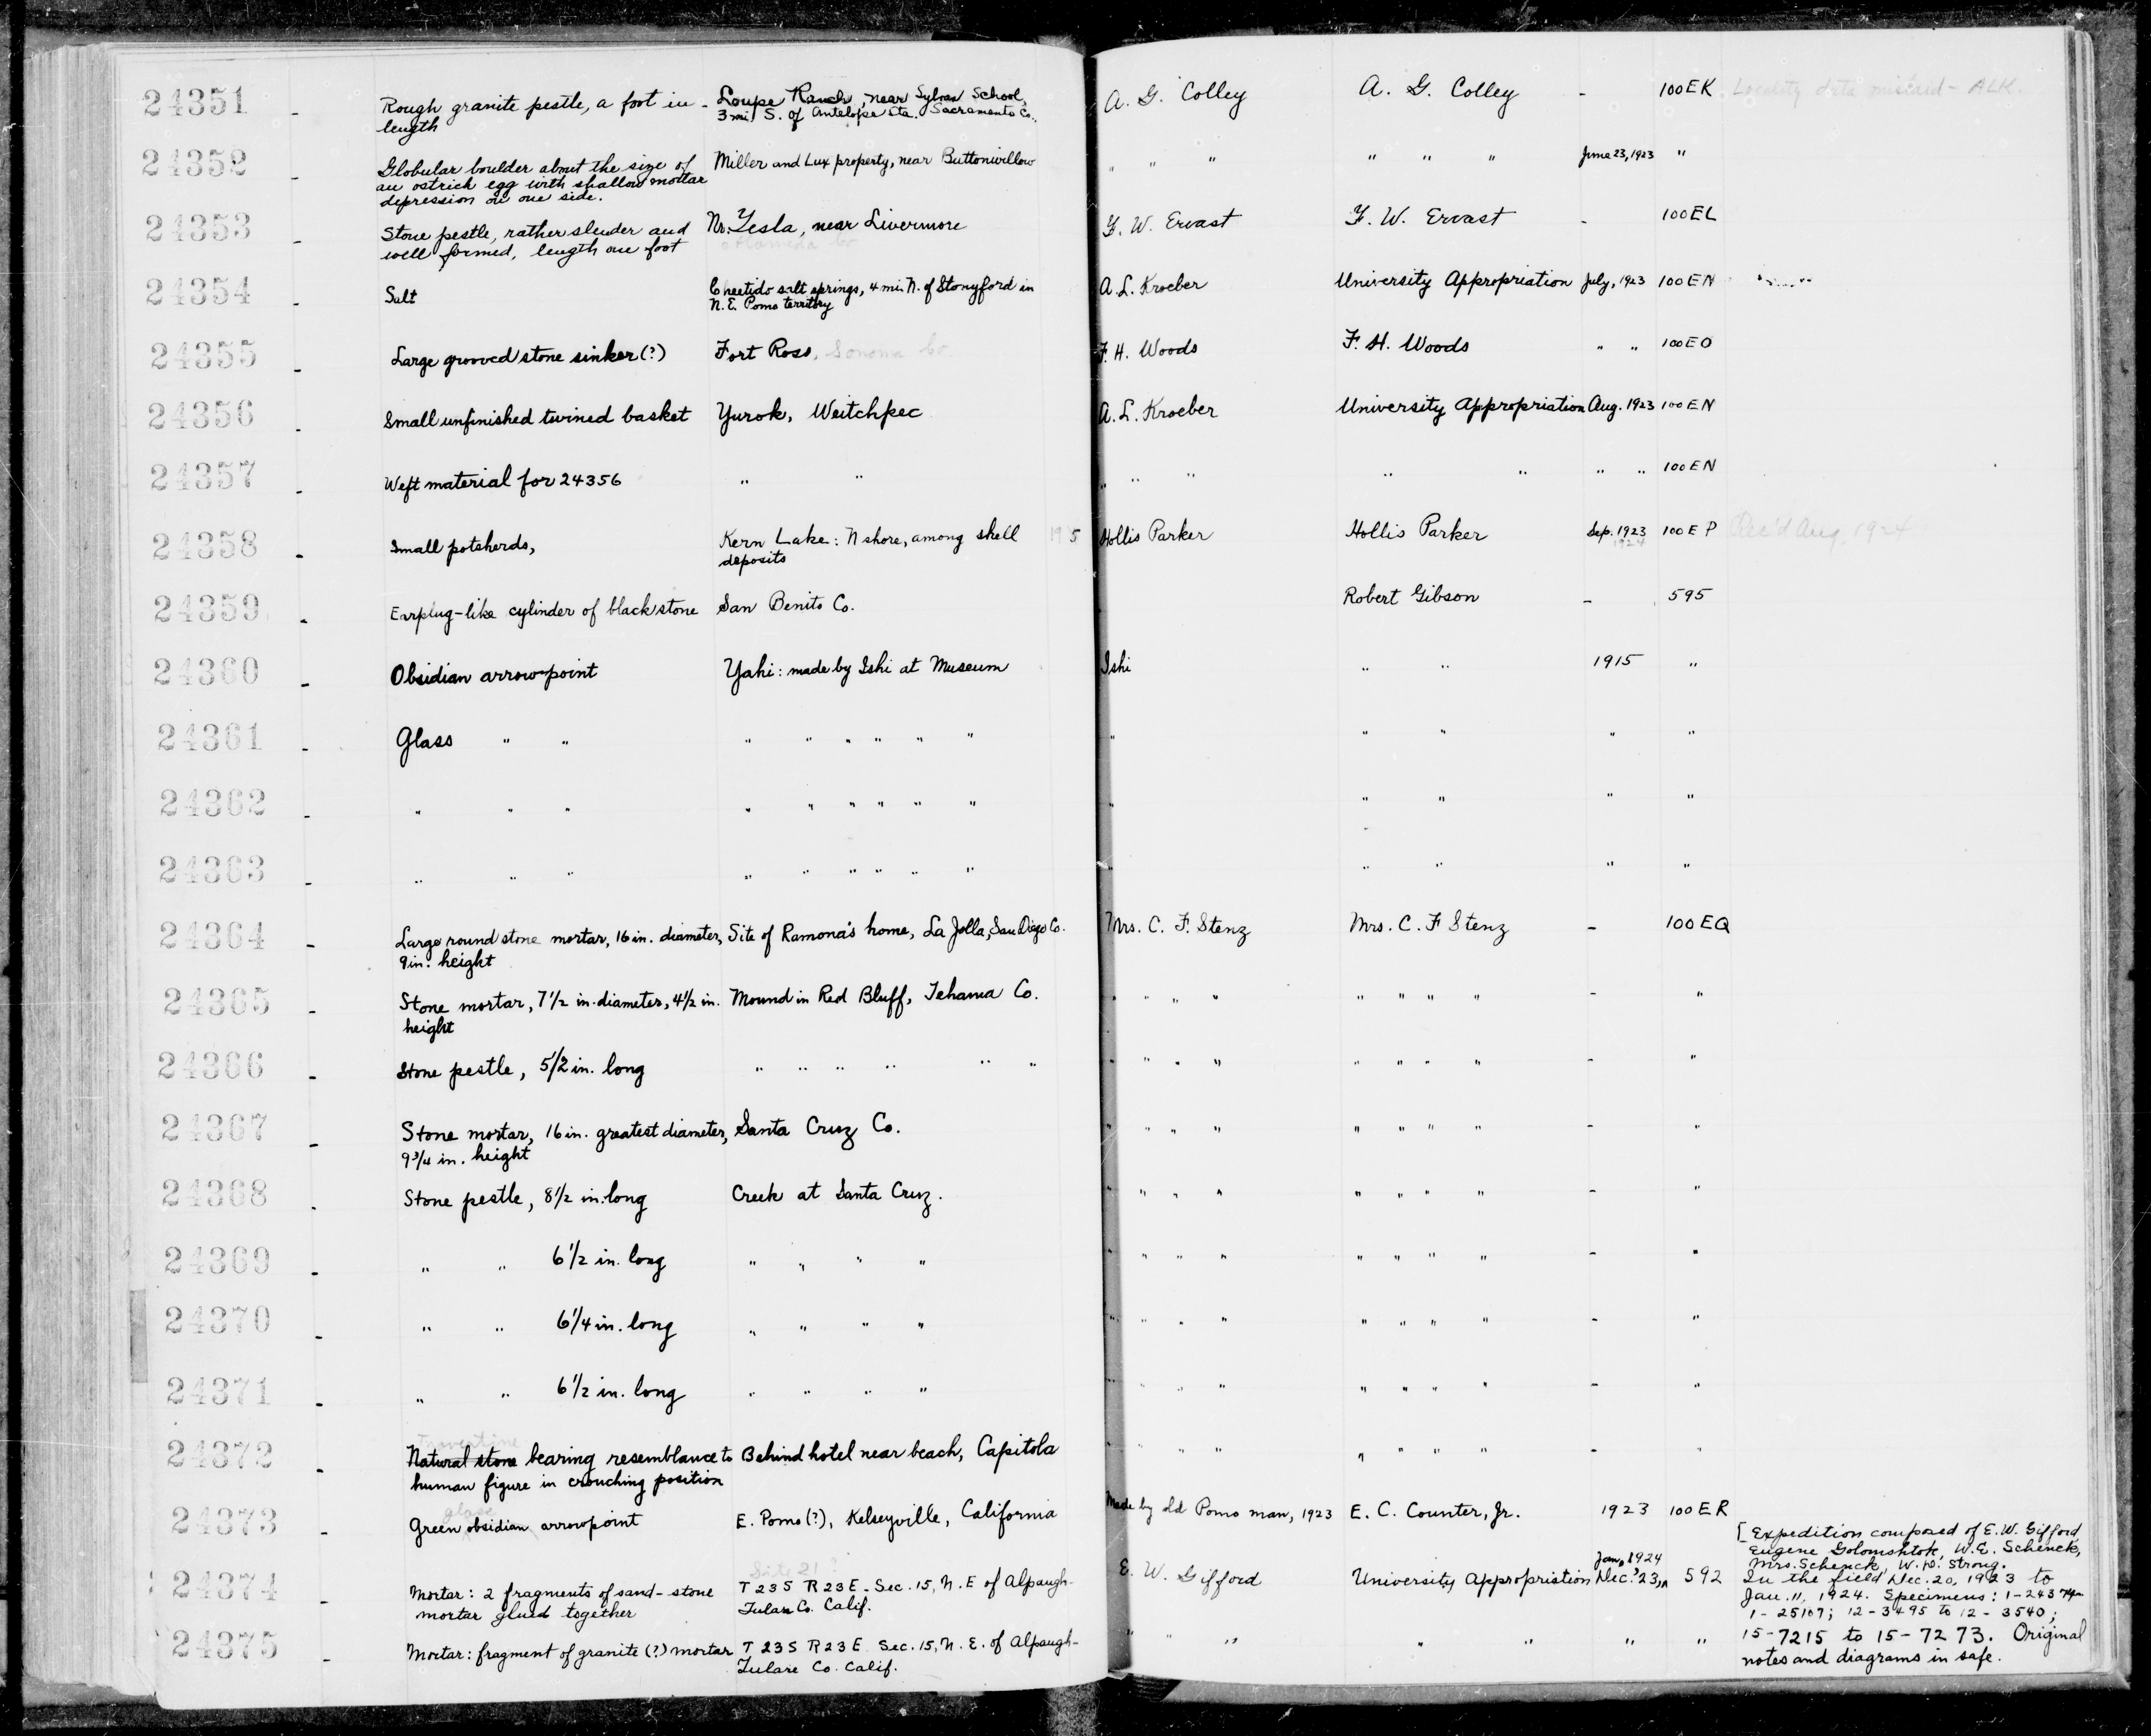 24351 - Rough granite pestle, a foot in - Loupe Ranch, near Sylvan School, A. G. Colley A. G. Colley - 100EK Locality data miscard - ALK.
length 3 mi. S. of Antelope sta. Sacramento Co.
24352 - Globular boulder about the size of Miller and Lux property, near Buttonwillow " " " " " " June 23, 1923 "
an ostrich egg with shallow mortar
depression on one side.
24353 - Stone pestle, rather slender and Nr. Tesla, near Livermore F. W. Ervast F. W. Ervast - 100EL
well formed, length one foot Alameda Co
24354 - Salt Cheetido salt springs, 4 mi. N. of Stonyford in A. L. Kroeber University Appropriation July, 1923 100EN
N. E. Pomo territory
24355 - Large grooved stone sinker (?) Fort Ross, Sonoma Co. F. H. Woods F. H. Woods " " 100EO
24356 - Small unfinished twined basket Yurok, Weitchpec A. L. Kroeber University Appropriation Aug. 1923 100EN
24357 - Weft material for 24356 " " " " " " " " " 100EN
24358 - Small potsherds, Kern Lake: N shore, among shell Hollis Parker Hollis Parker Sep. 1923 100EP Rec'd Aug. 1924
deposits 1924
24359 - Earplug-like cylinder of black stone San Benito Co. Robert Gibson - 595
24360 - Obsidian arrowpoint Yahi: made by Ishi at Museum Ishi " " 1915 "
24361 - Glass " " " " " " " " " " " " "
24362 - " " " " " " " " " " " " " "
24363 - " " " " " " " " " " " " " "
24364 - Large round stone mortar, 16 in. diameter, Site of Ramona's home, La Jolla, San Diego Co. Mrs. C. F. Stenz Mrs. C. F Stenz - 100EQ
9 in. height
24365 - Stone mortar, 7 1/2 in. diameter, 4 1/2 in. Mound in Red Bluff, Tehama Co. " " " " " " " " - "
height
24366 - Stone pestle, 5 1/2 in. long " " " " " " " " " " " " " " - "
24367 - Stone mortar, 16 in. greatest diameter, Santa Cruz Co. " " " " " " " " - "
9 3/4 in. height
24368 - Stone pestle, 8 1/2 in. long Creek at Santa Cruz. " " " " " " " - "
24369 - " " 6 1/2 in. long " " " " " " " " " " " - "
24370 - " " 6 1/4 in. long " " " " " " " " " " " - "
24371 - " " 6 1/2 in. long " " " " " " " " " " " - "
Travertine
24372 - Natural stone bearing resemblance to Behind hotel near beach, Capitola " " " " " " " - "
human figure in crouching position
glass
24373 - Green obsidian arrowpoint E. Pomo (?), Kelseyville, California Made by old Pomo man, 1923 E. C. Counter, Jr. 1923 100ER
[Expedition composed of E. W. Gifford
Eugene Golomshtok, W. E. Schenck,
Site 21? Jan. 1924 Mrs. Schenck, W. D. Strong.
24374 Mortar: 2 fragments of sand-stone T 23S R 23E - Sec. 15, N. E of Alpaugh - E. W. Gifford University Appropriation Dec. '23, 592 In the field Dec. 20, 1923 to
mortar glued together Tulare Co. Calif. Jan. 11, 1924. Specimens: 1-24374 -
1-25107; 12-3495 to 12-3540;
24375 - Mortar: fragment of granite (?) mortar T 23S R 23E Sec. 15, N. E. of Alpaugh - " " " " " " " 15-7215 to 15-7273. Original
Tulare Co. Calif. notes and diagrams in safe.